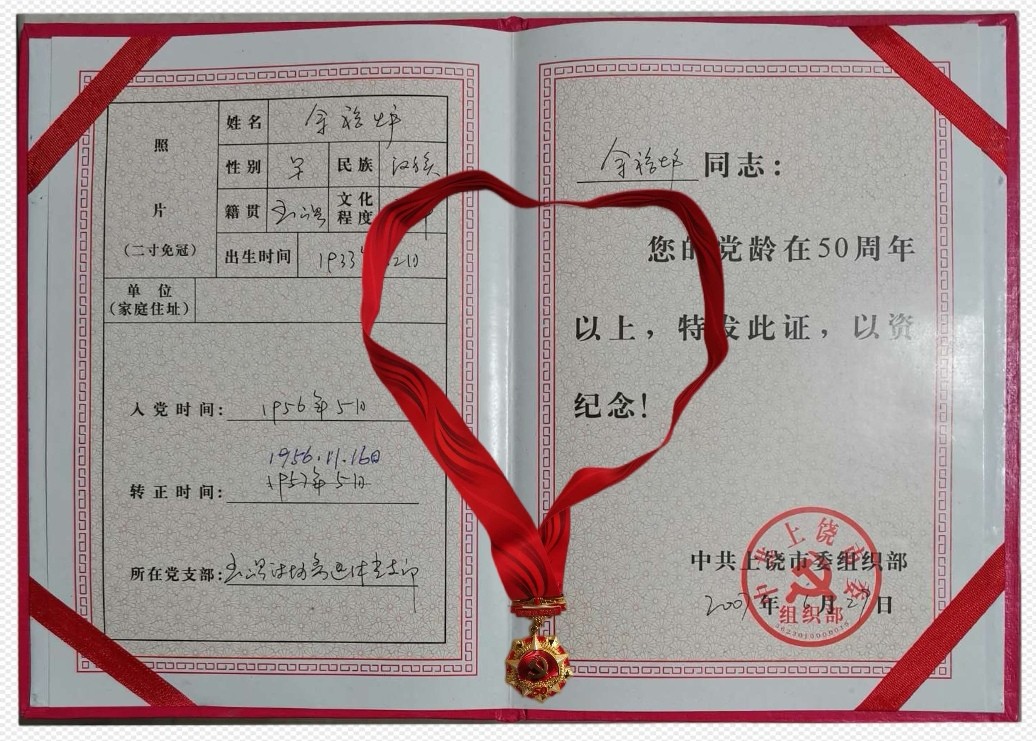 照
片
(二寸免冠)
姓名 余
性别 民族 汉族
籍贯 玉 文化程度
出生时间 1933
单位
(家庭住址)
入党时间: 1956年5月
1956.11.16日
转正时间: 1957年5月
所在党支部:
余 同志:
您的党龄在50周年
以上,特发此证,以资
纪念!
中共上饶市委组织部
2007年6月27日
中共上饶市委
组织部